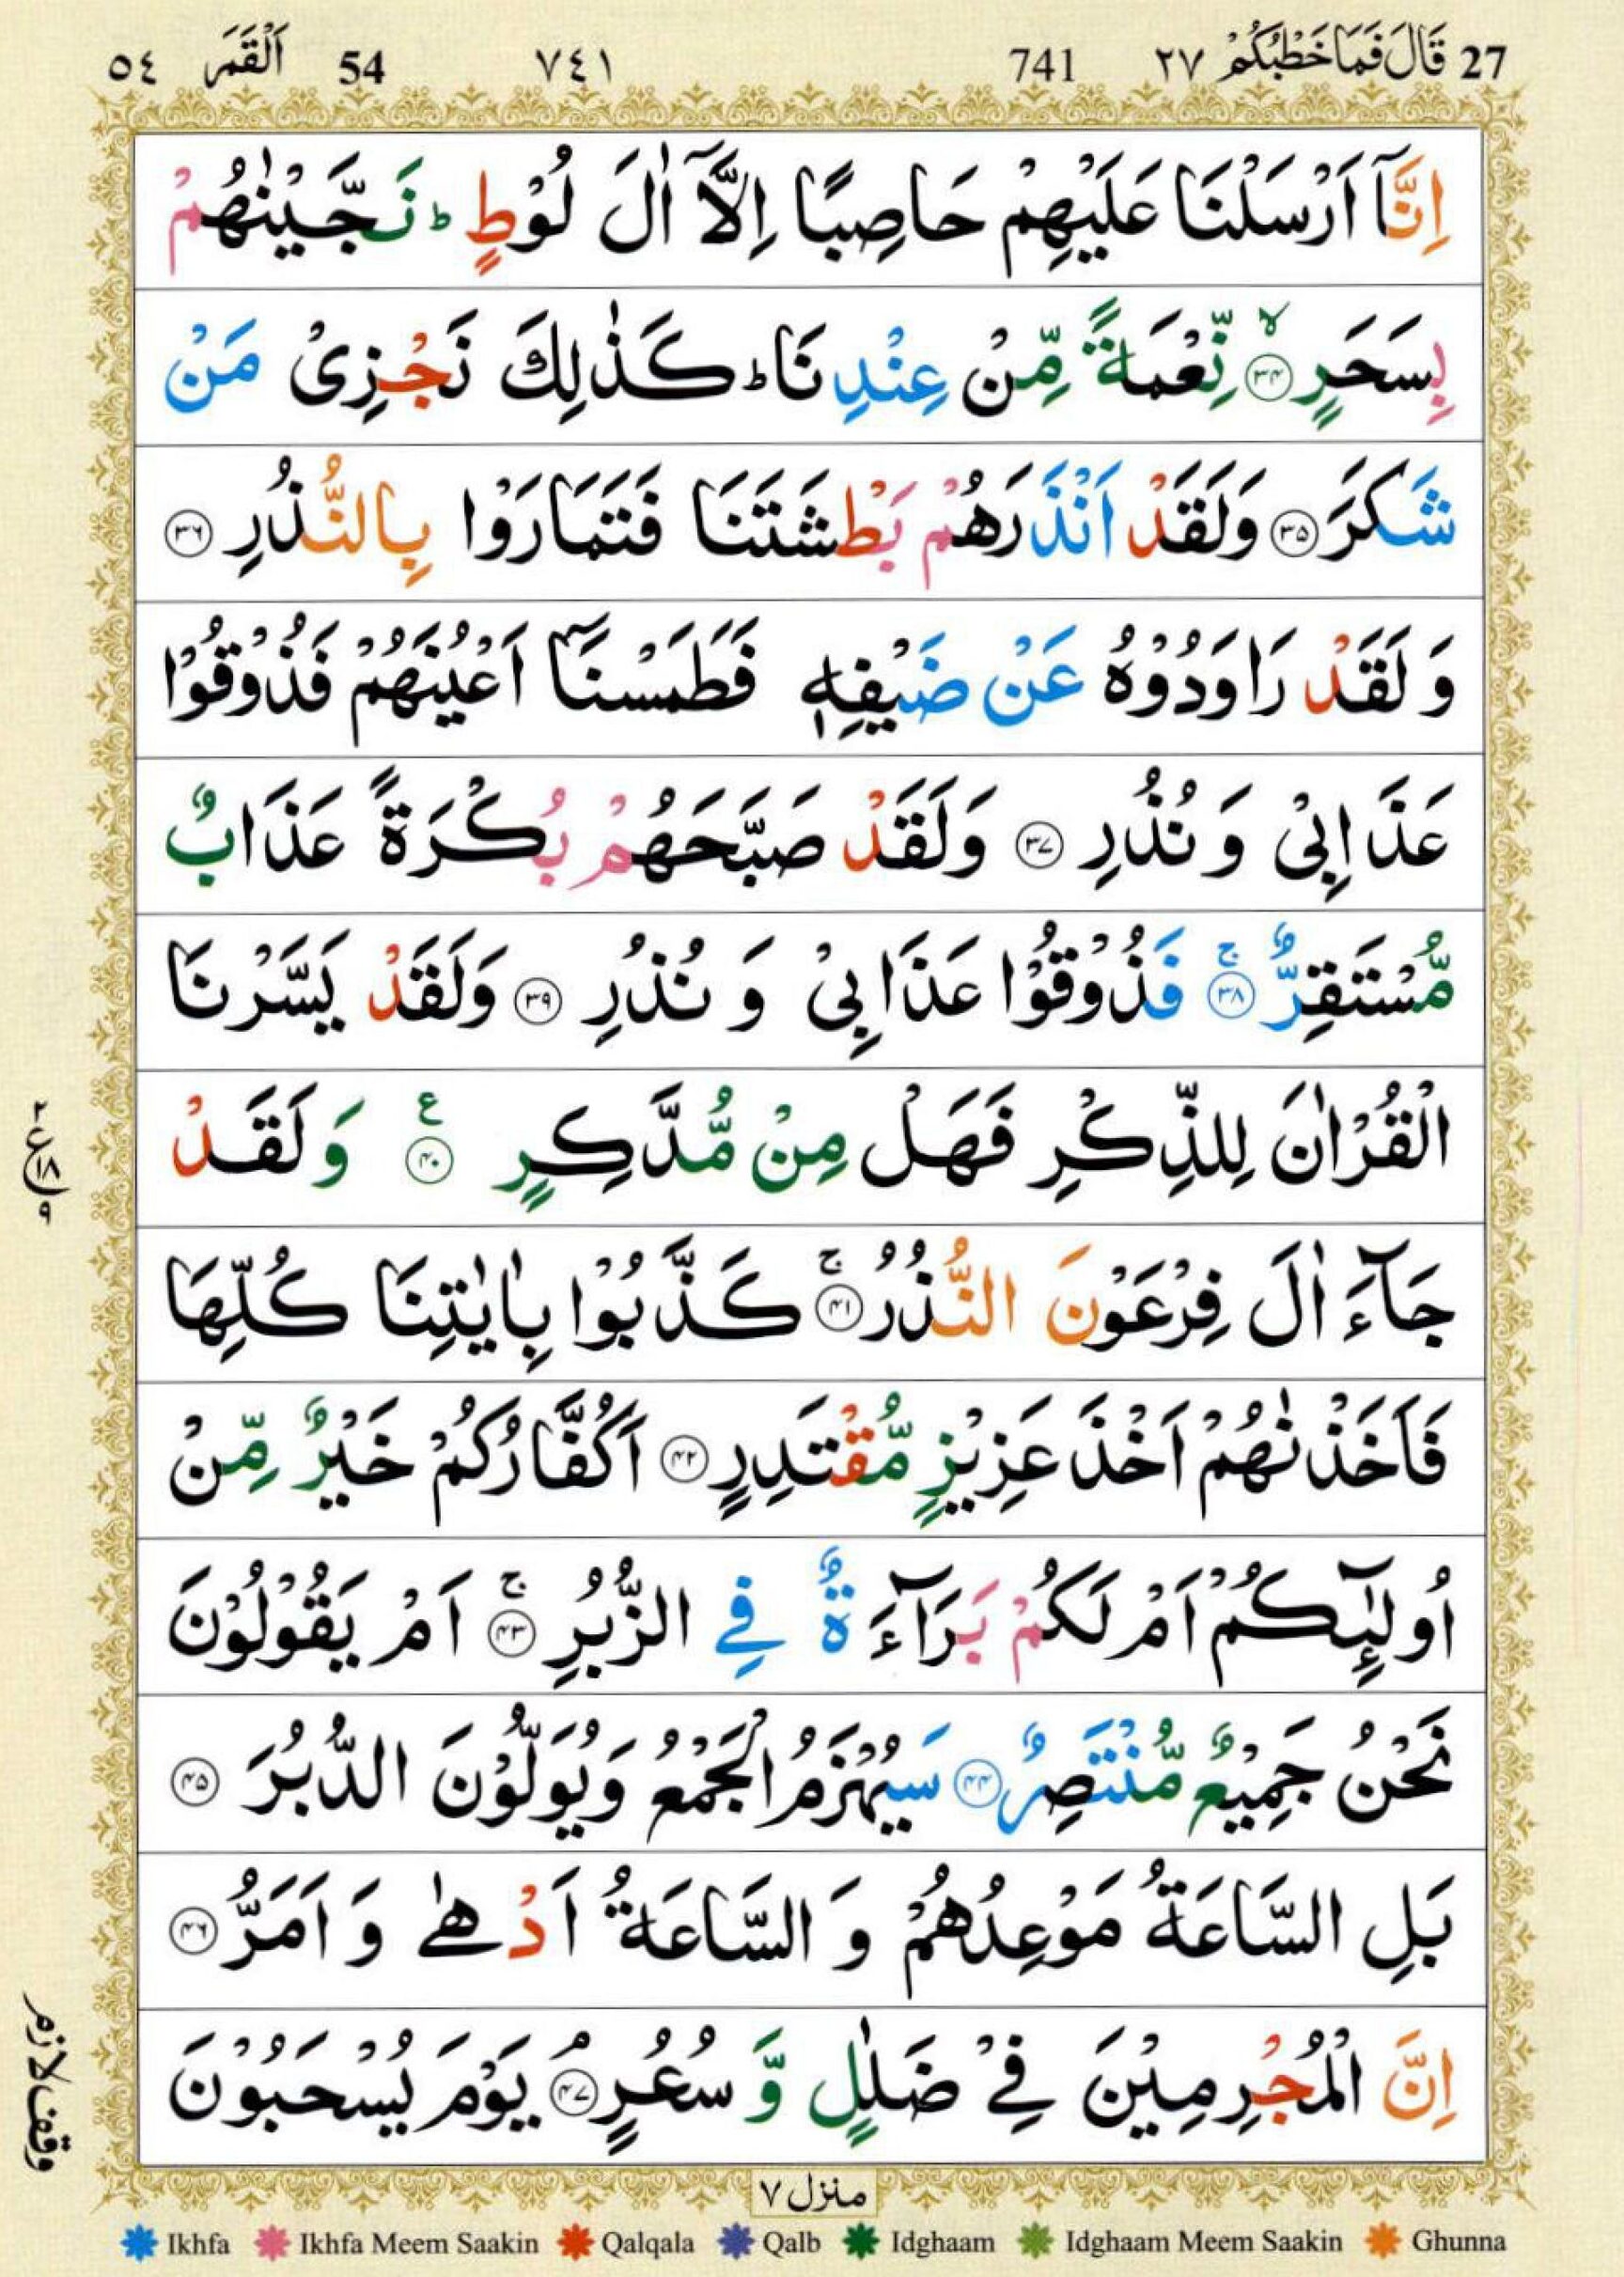 27 قَالَ فَمَا خَطْبُكُمْ ٢٧ 741 ٧٤١ 54 اَلْقَمَر ٥٤
اِنَّاۤ اَرْسَلْنَا عَلَيْهِمْ حَاصِبًا اِلَّاۤ اٰلَ لُوْطٍ ؕ نَجَّيْنٰهُمْ
بِسَحَرٍ ۙ‏﴿۳۴﴾ نِّعْمَةً مِّنْ عِنْدِنَا ؕ كَذٰلِكَ نَجْزِىْ مَنْ
شَكَرَ ﴿۳۵﴾ وَلَقَدْ اَنْذَرَهُمْ بَطْشَتَنَا فَتَمَارَوْا بِالنُّذُرِ ﴿۳۶﴾
وَ لَقَدْ رَاوَدُوْهُ عَنْ ضَيْفِهٖ فَطَمَسْنَاۤ اَعْيُنَهُمْ فَذُوْقُوْا
عَذَابِىْ وَ نُذُرِ ﴿۳۷﴾ وَلَقَدْ صَبَّحَهُمْ بُكْرَةً عَذَابٌ
مُّسْتَقِرٌّ ۚ‏﴿۳۸﴾ فَذُوْقُوْا عَذَابِىْ وَ نُذُرِ ﴿۳۹﴾ وَلَقَدْ يَسَّرْنَا
الْقُرْاٰنَ لِلذِّكْرِ فَهَلْ مِنْ مُّدَّكِرٍ ﴿۴۰﴾ ع وَ لَقَدْ
جَآءَ اٰلَ فِرْعَوْنَ النُّذُرُ ۚ‏﴿۴۱﴾ كَذَّبُوْا بِاٰيٰتِنَا كُلِّهَا
فَاَخَذْنٰهُمْ اَخْذَ عَزِيْزٍ مُّقْتَدِرٍ ﴿۴۲﴾ اَكُفَّارُكُمْ خَيْرٌ مِّنْ
اُولٰٓئِكُمْ اَمْ لَكُمْ بَرَآءَةٌ فِى الزُّبُرِ ۚ‏﴿۴۳﴾ اَمْ يَقُوْلُوْنَ
نَحْنُ جَمِيْعٌ مُّنْتَصِرٌ ﴿۴۴﴾ سَيُهْزَمُ الْجَمْعُ وَيُوَلُّوْنَ الدُّبُرَ ﴿۴۵﴾
بَلِ السَّاعَةُ مَوْعِدُهُمْ وَ السَّاعَةُ اَدْهٰى وَ اَمَرُّ ﴿۴۶﴾
اِنَّ الْمُجْرِمِيْنَ فِىْ ضَلٰلٍ وَّ سُعُرٍ ۘ‏﴿۴۷﴾ يَوْمَ يُسْحَبُوْنَ
۲ ع ۱۸ ۹
وقف لازم
منزل ٧
Ikhfa Ikhfa Meem Saakin Qalqala Qalb Idghaam Idghaam Meem Saakin Ghunna